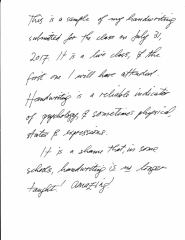 This is a sample of my handwriting
submitted for the class on July 31,
2017. It is a live class, & the
first one I will have attended.
Handwriting is a reliable indicator
of psychology, & sometimes physical,
states & expressions.
It is a shame that, in some
schools, handwriting is no longer
taught! Amazing!